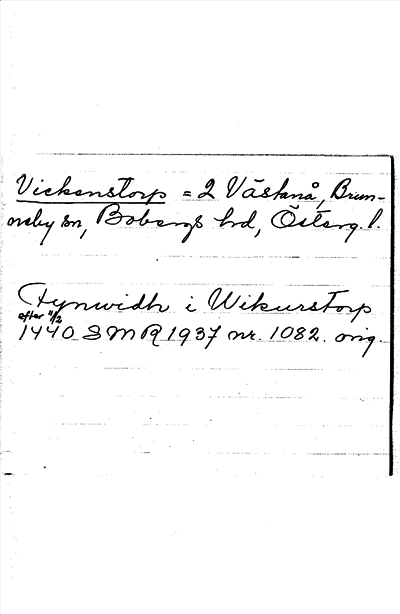 Vickenstorp = 2 Västanå, Brun-
neby sn, Bobergs hrd, Östergl.
Tynwidh i Wikurstorp
efter 11/2
1440 SMR 1937 nr. 1082. orig.